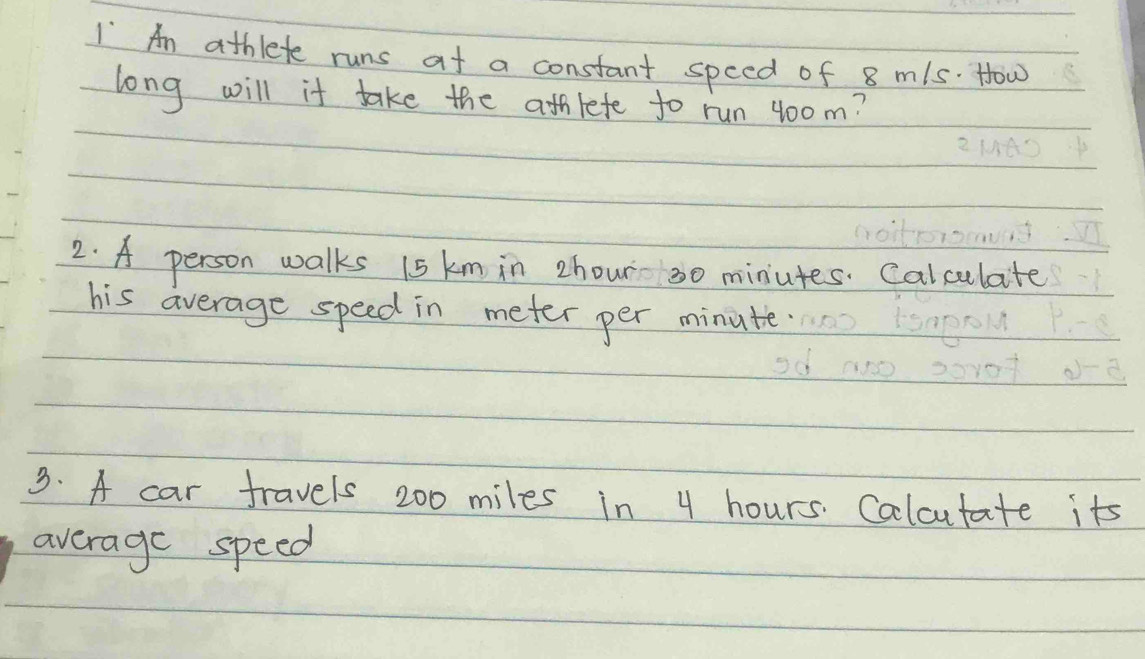 1. An athlete runs at a constant speed of 8 m/s. How
long will it take the athlete to run 400 m?
2. A person walks 15 km in 2hour 30 minutes. Calculate
his average speed in meter per minute.
3. A car travels 200 miles in 4 hours. Calcutate its
average speed